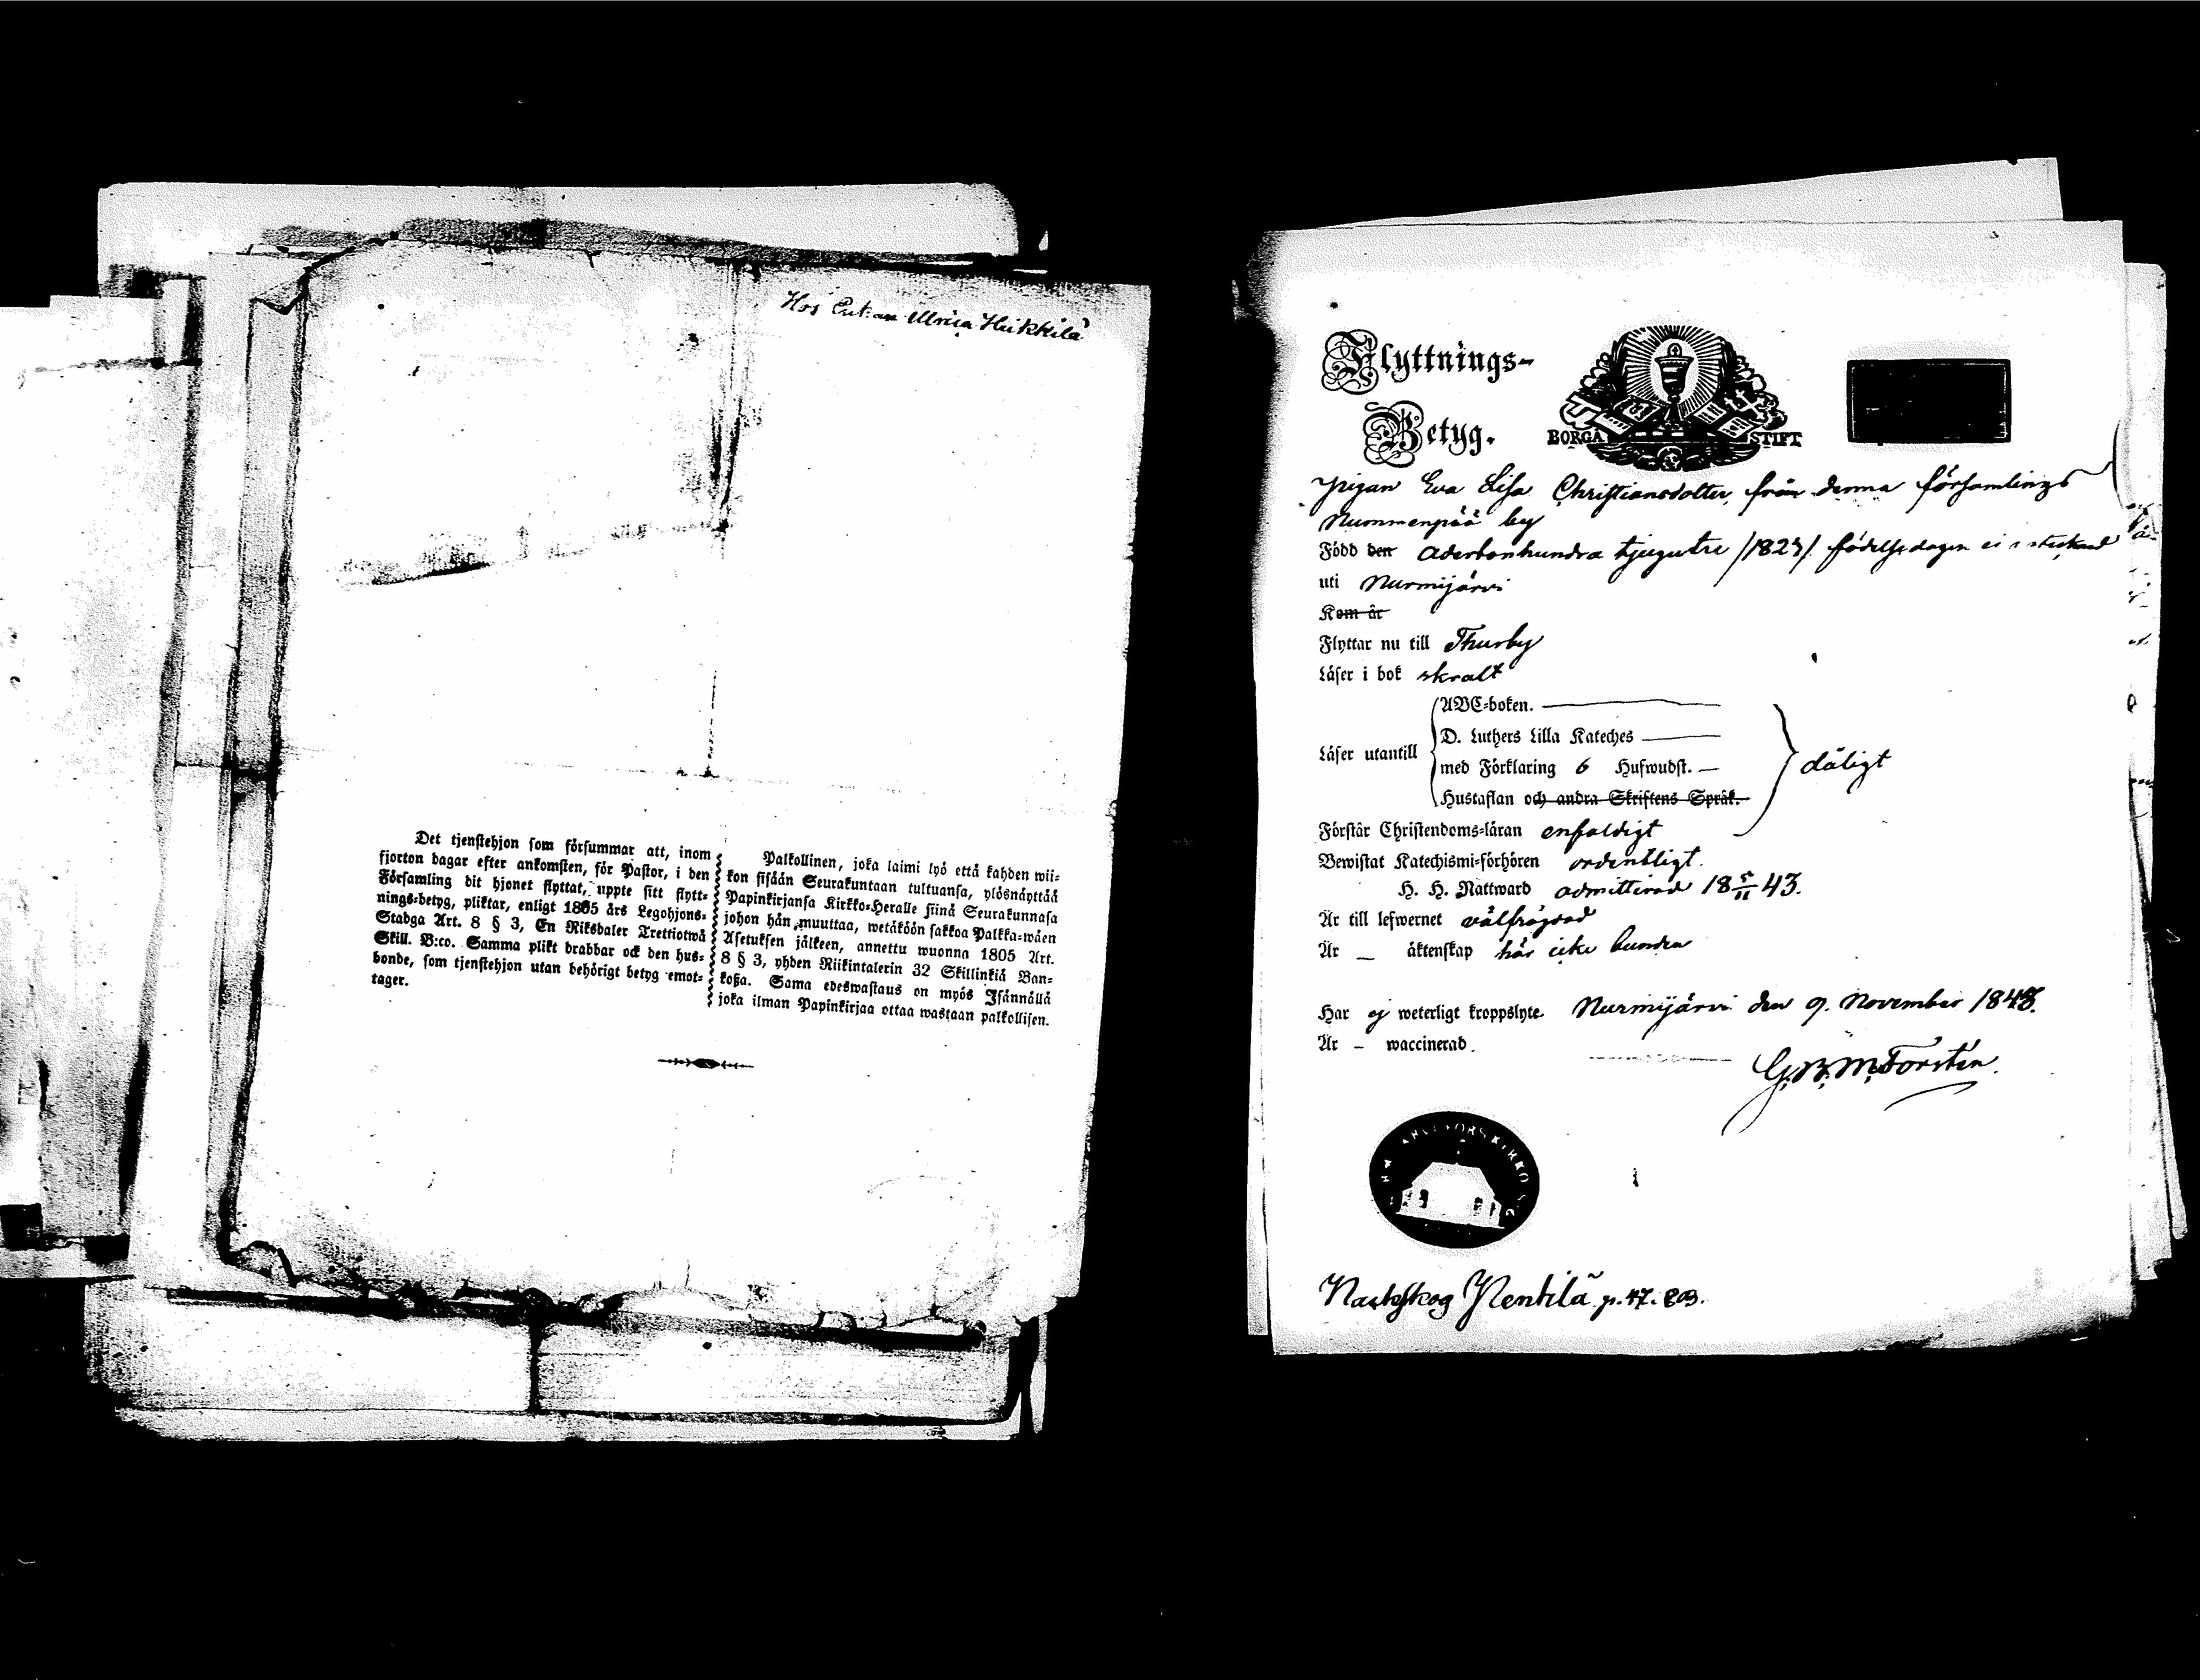 Hos Enkan Ulrica Heikkilä
Det tjenstehjon som försummar att, inom
fjorton dagar efter ankomsten, för Pastor, i den
Församling dit hjonet flyttat, uppte sitt flytt-
nings-betyg, pliktar, enligt 1805 års Legohjons-
Stadga Art. 8 § 3, En Riksdaler Trettiotwå
Skill. B:co. Samma plikt drabbar ock den hus-
bonde, som tjenstehjon utan behörigt betyg emot-
tager.
Palkollinen, joka laimi lyö että kahden wii-
kon sisään Seurakuntaan tultuansa, ylösnäyttää
Papinkirjansa Kirkko-Heralle siinä Seurakunnasa
johon hän muuttaa, wetäköön sakkoa Palkka-wäen
Asetuksen jälkeen, annettu wuonna 1805 Art.
8 § 3, yhden Riikintalerin 32 Skillinkiä Ban-
koßa. Sama edeswastaus on myös Isännällä
joka ilman Papinkirjaa ottaa wastaan palkollisen.
Flyttnings-
Betyg.
BORGÅ STIFT
Pigan Eva Lisa Christiansdotter, från denna församlings
Nummenpää by
Född den adertonhundra tjugutre /1823/ födelsedagen ei
uti Nurmijärvi
Kom år
Flyttar nu till Thusby
Läser i bok skralt
Läser utantill
ABC-boken.
D. Luthers Lilla Kateches
med Förklaring 6 Hufwudst.
Hustaflan och andra Skriftens Språk.
dåligt
Förstår Christendoms-läran enfaldigt
Bewistat Katechismi-förhören ordentligt.
H. H. Nattward admitterad 18 5/11 43.
Är till lefwernet välfrägdad
Är — äktenskap här icke bunden
Har ej weterligt kroppslyte. Nurmijärvi den 9. November 1843.
Är – waccinerad.
G. W. M. Forstén.
Nentilä p. 47.